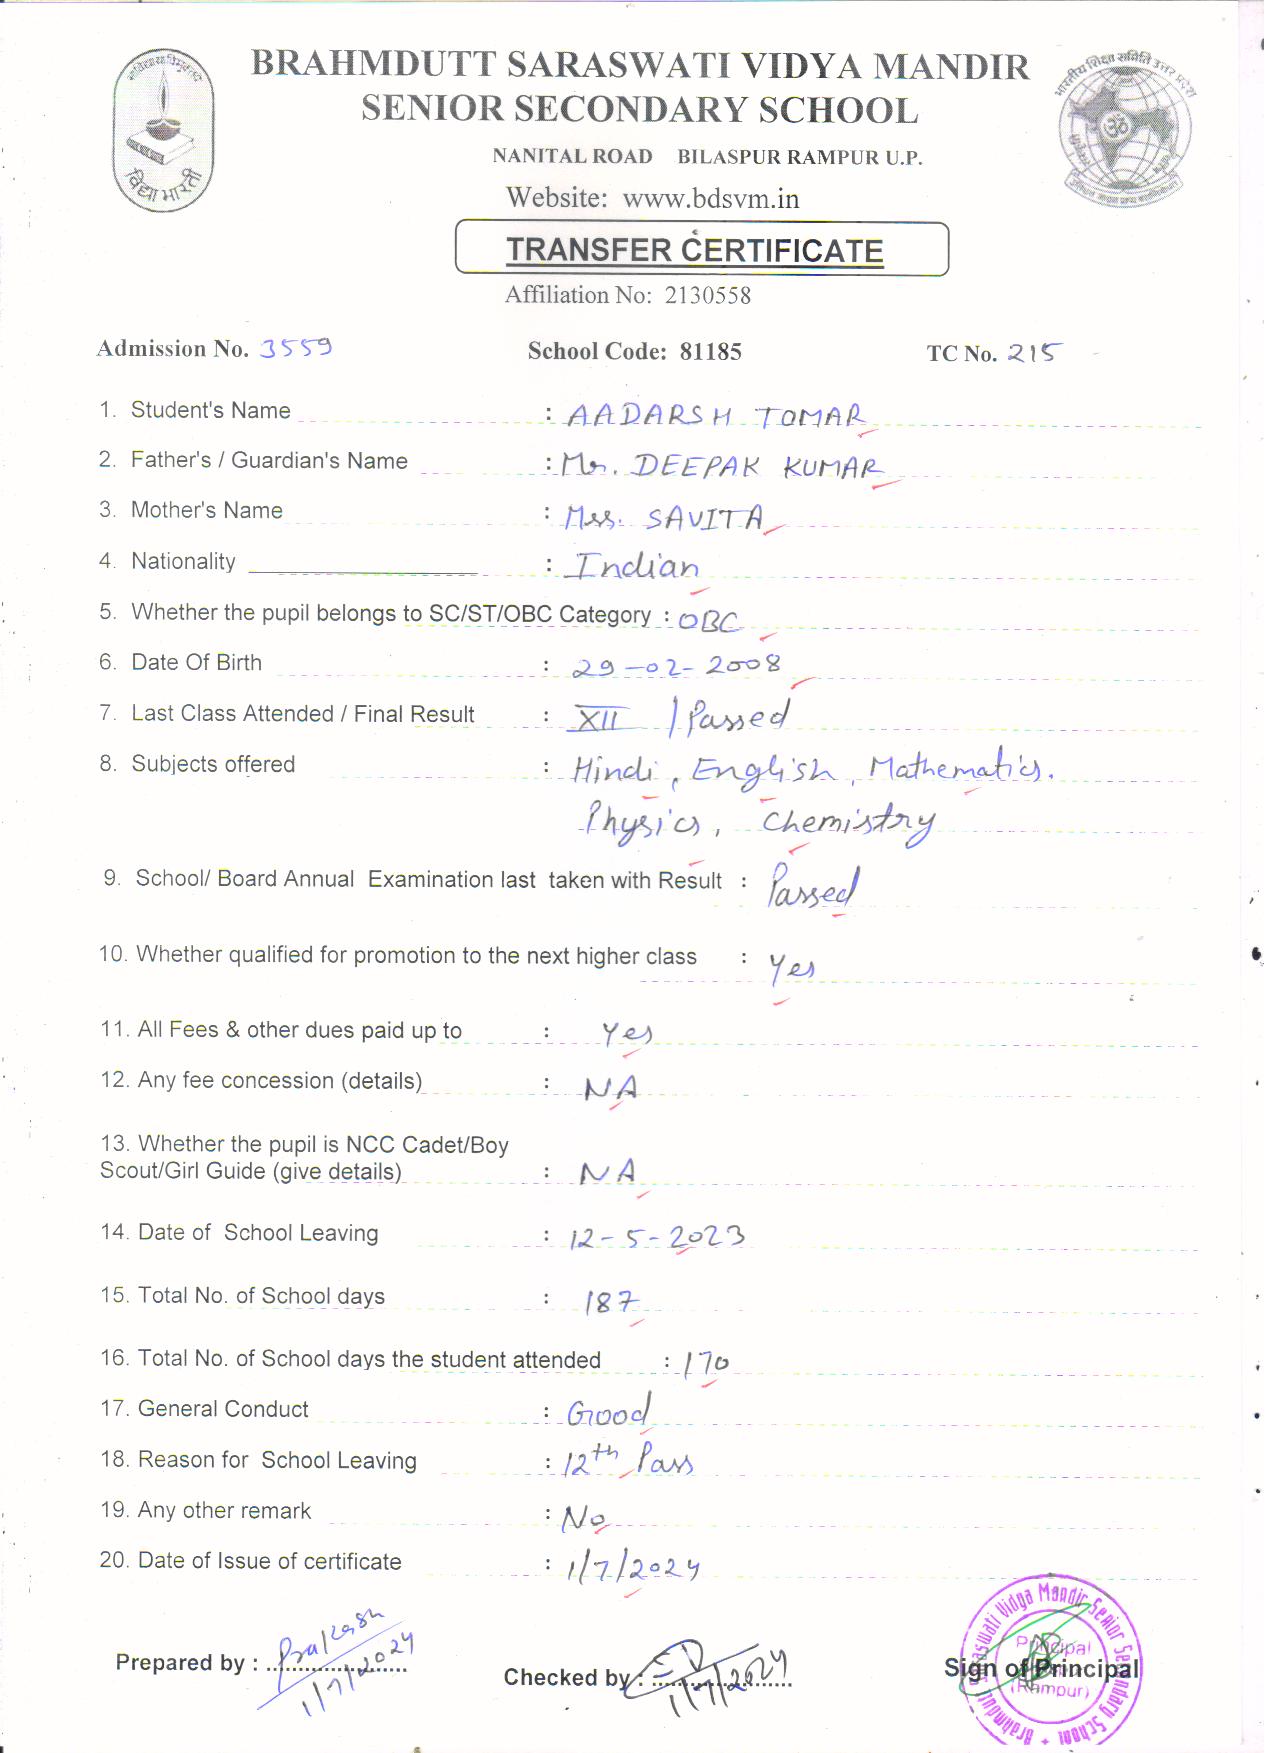 BRAHMDUTT SARASWATI VIDYA MANDIR
SENIOR SECONDARY SCHOOL
NANITAL ROAD BILASPUR RAMPUR U.P.
Website: www.bdsvm.in
विद्या भारती
भारतीय शिक्षा समिति उत्तर प्रदेश
TRANSFER CERTIFICATE
Affiliation No: 2130558
Admission No. 3559 School Code: 81185 TC No. 215
1. Student's Name : AADARSH TOMAR
2. Father's / Guardian's Name : Mr. DEEPAK KUMAR
3. Mother's Name : Mrs. SAVITA
4. Nationality : Indian
5. Whether the pupil belongs to SC/ST/OBC Category : OBC
6. Date Of Birth : 29-02-2008
7. Last Class Attended / Final Result : XII / Passed
8. Subjects offered : Hindi, English, Mathematics.
Physics, Chemistry
9. School/ Board Annual Examination last taken with Result : Passed
10. Whether qualified for promotion to the next higher class : Yes
11. All Fees & other dues paid up to : Yes
12. Any fee concession (details) : NA
13. Whether the pupil is NCC Cadet/Boy
Scout/Girl Guide (give details) : NA
14. Date of School Leaving : 12-5-2023
15. Total No. of School days : 187
16. Total No. of School days the student attended : 170
17. General Conduct : Good
18. Reason for School Leaving : 12th Pass
19. Any other remark : No
20. Date of Issue of certificate : 1/7/2024
Prepared by : Prakash
1/7/2024
Checked by : 1/7/2024
Sign of Principal
Brahmdutt Saraswati Vidya Mandir Senior Secondary School
Principal
(Rampur)